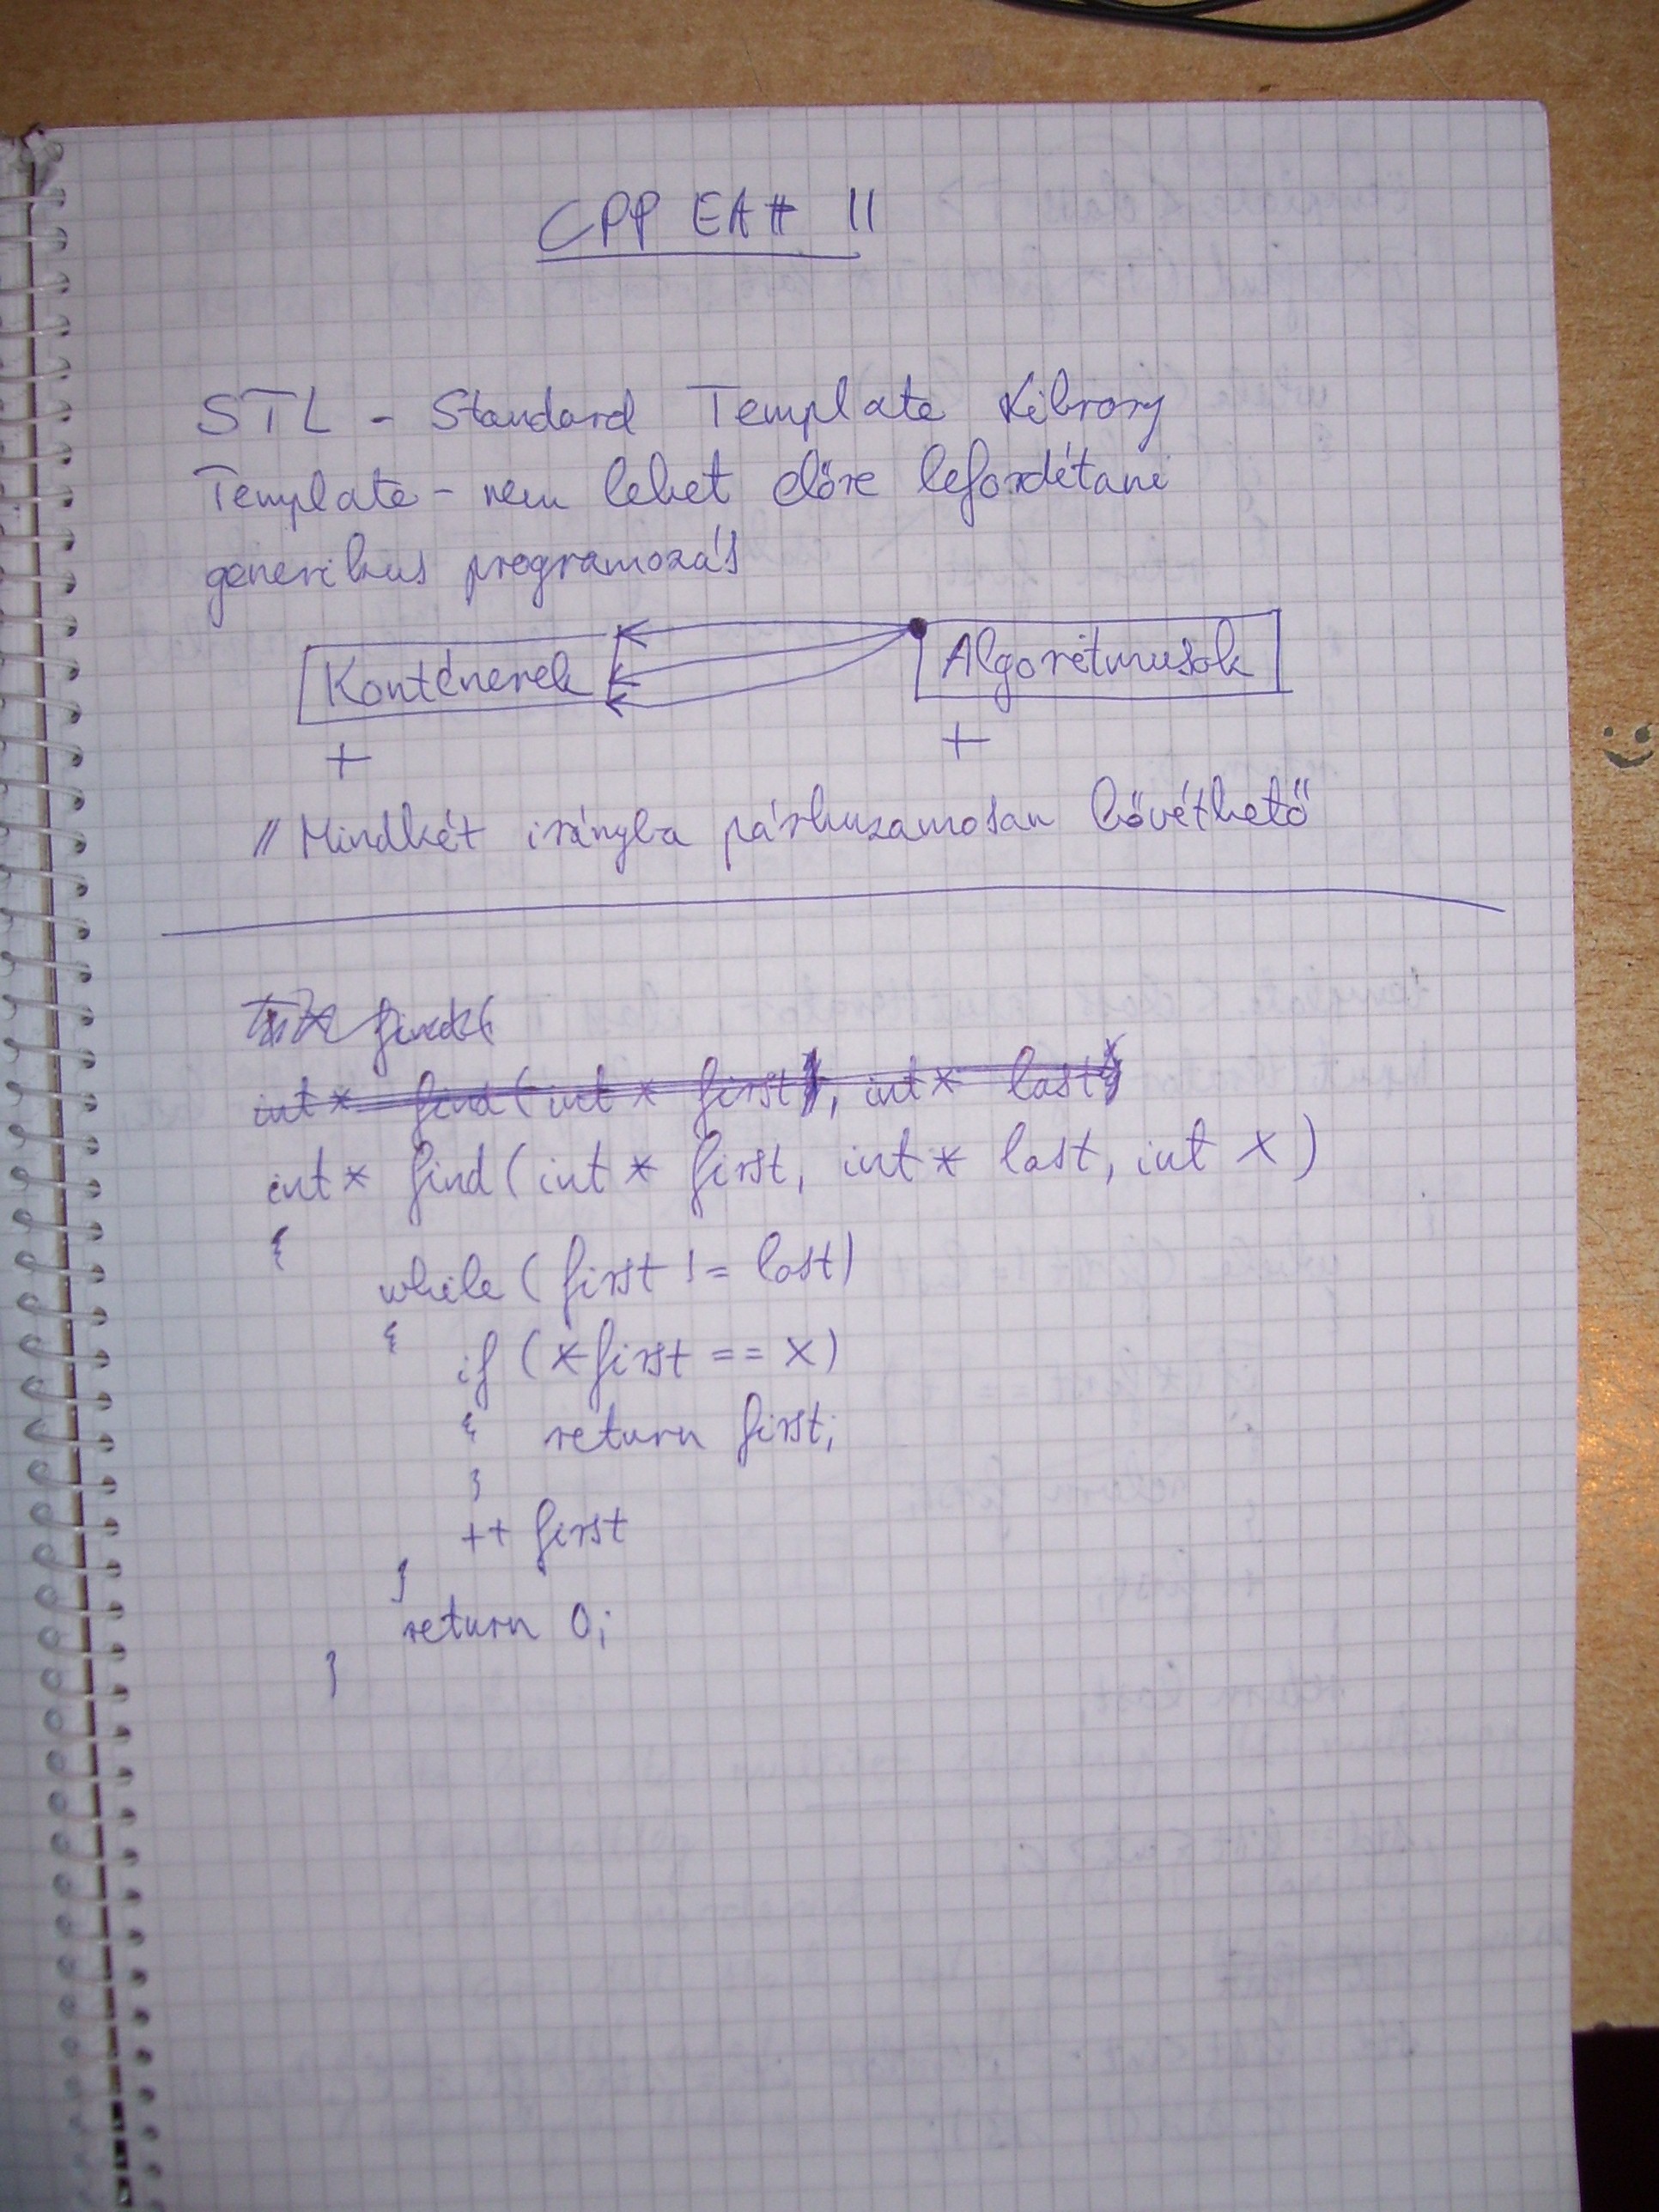 CPP EA# 11
STL - Standard Template Library
Template - nem lehet előre lefordítani
generikus programozás
Konténerek Algoritmusok
+ +
// Mindkét irányba párhuzamosan bővíthető
find(
int* find(int* first, int* last
int* find(int* first, int* last, int x)
{
while(first != last)
{
if (*first == x)
{ return first;
}
++first
}
return 0;
}